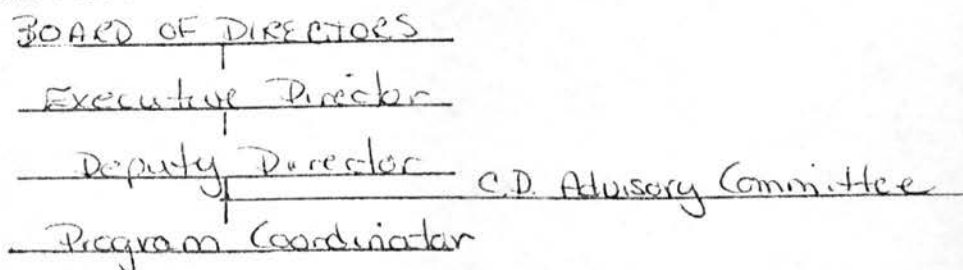 BOARD OF DIRECTORS
Executive Director
Deputy Director
C.D. Advisory Committee
Program Coordinator